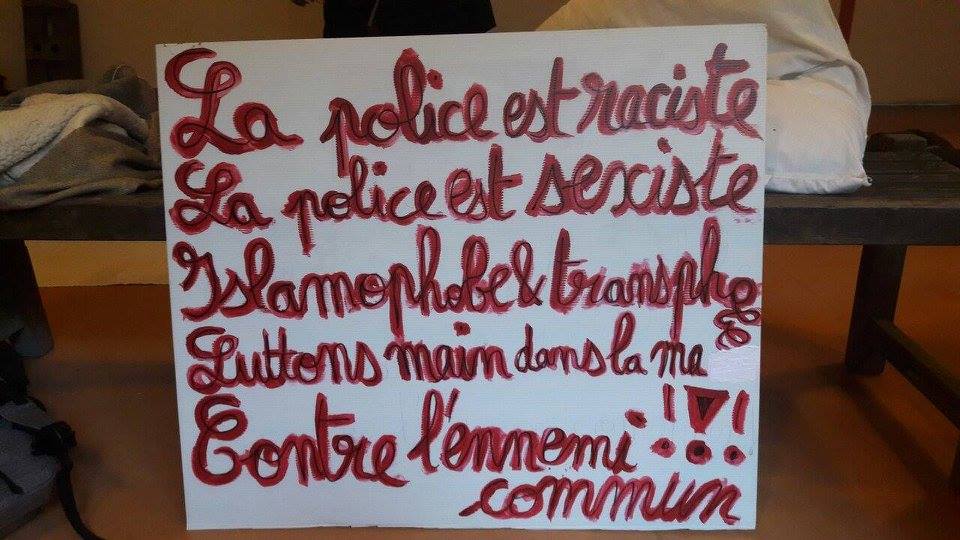 La police est raciste
La police est sexiste
Islamophobe & transphobe
Luttons main dans la ma
Contre l'ennemi !!!
commun